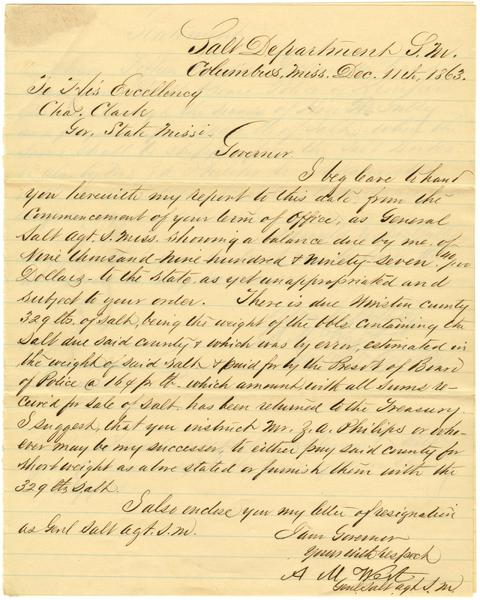 Salt Department S.M.
Columbus, Miss. Dec. 11th, 1863.
To His Excellency
Chas. Clark
Gov. State Missi.
Governor
I beg leave to hand
you herewith my report to this date from the
Commencement of your term of Office, as General
Salt Agt. S. Miss. showing a balance due by me of
Nine thousand nine hundred & ninety-seven 40/100
Dollars - to the State as yet unappropriated and
subject to your order. There is due Winston County
329 lbs. of salt, being the weight of the bbls containing the
Salt due said county & which was by error, estimated in
the weight of said Salt & paid for by the Prest of Board
of Police @ 16¢ pr lb - which amount with all sums re-
ceived for sale of Salt, has been returned to the Treasury.
I suggest, that you instruct Mr. Z. A. Philips or who-
ever may be my successor, to either pay said county for
short weight as above stated or furnish them with the
329 lbs Salt.
I also enclose you my letter of resignation
as Genl Salt Agt. S.M.
I am Governor
Yours with respect
A M West
Genl Salt Agt S.M.